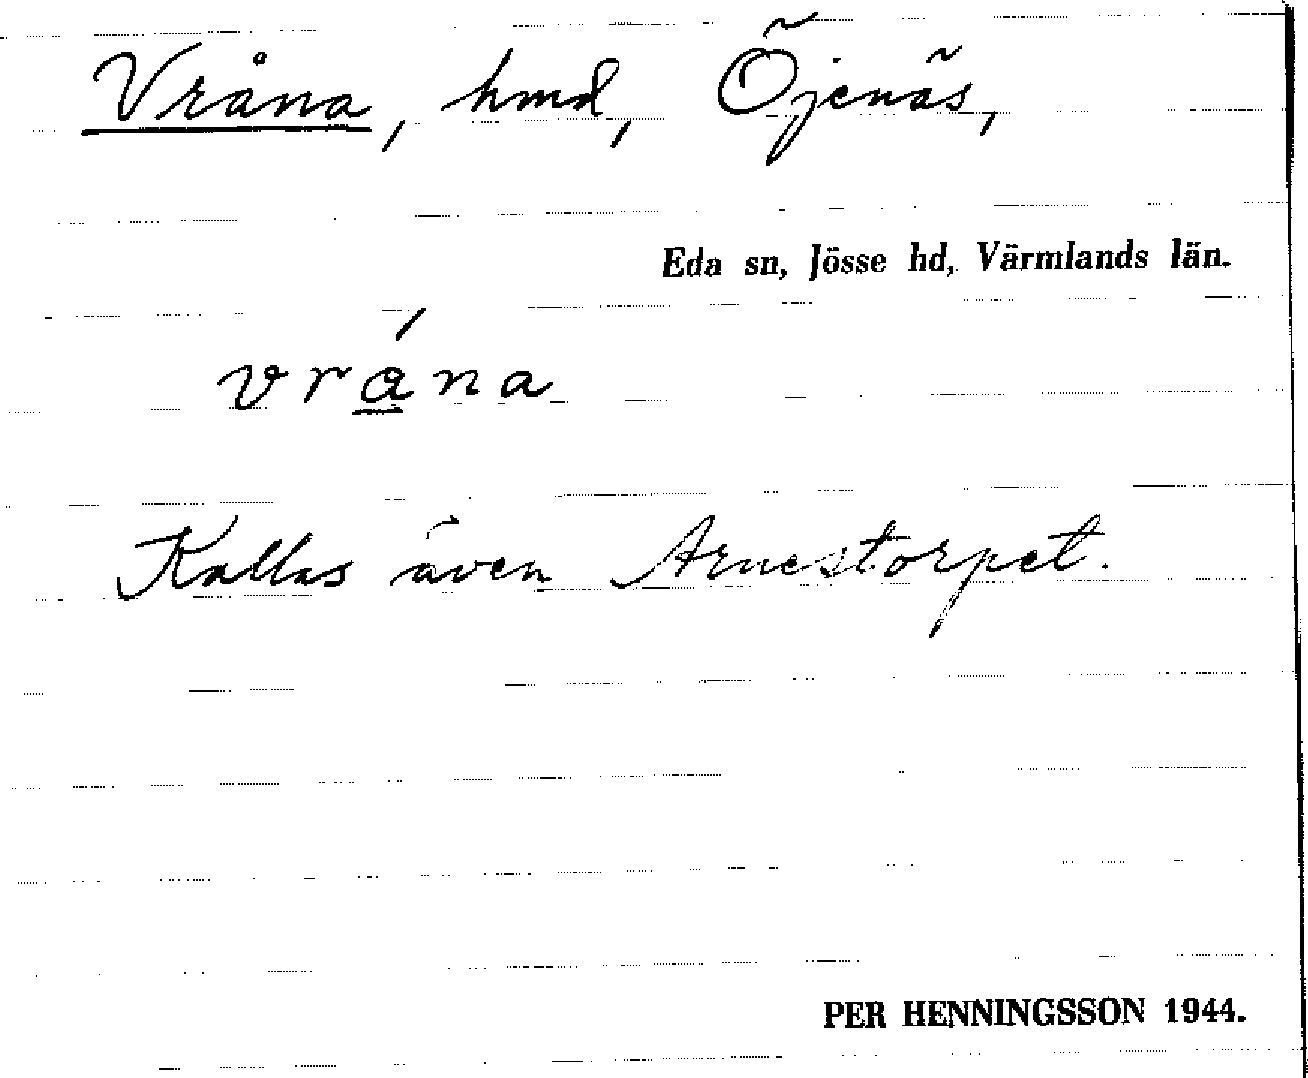 Vråna, hmd, Öjenäs,
Eda sn, Jösse hd, Värmlands län.
vrǻna
Kallas även Arnestorpet.
PER HENNINGSSON 1944.